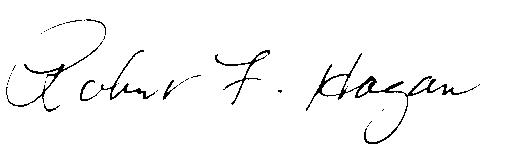 Robert F. Hagan